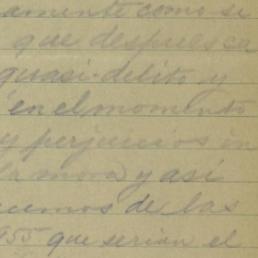 amente como si
que despues ca
quasi-delito y
en el momento
y perjuicios in
la mora y asi
cemos de las
955 que serian el